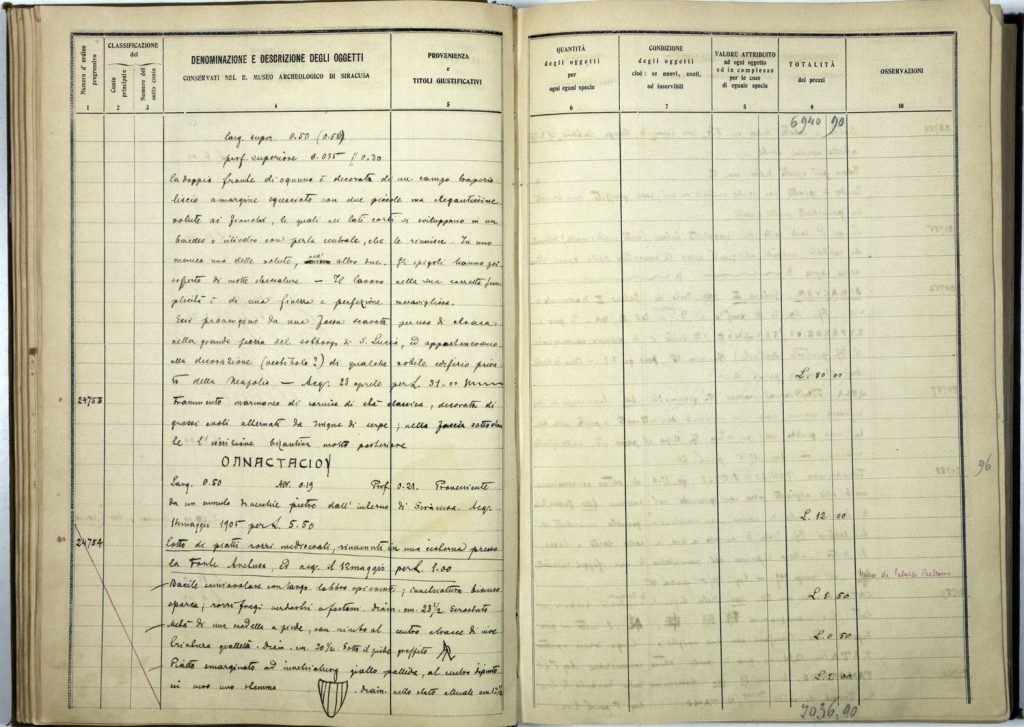 Numero d'ordine progressivo
CLASSIFICAZIONE
del
Conto principale
Numero del sotto conto
DENOMINAZIONE E DESCRIZIONE DEGLI OGGETTI
CONSERVATI NEL R. MUSEO ARCHEOLOGICO DI SIRACUSA
PROVENIENZA
e
TITOLI GIUSTIFICATIVI
1 2 3 4 5
larg. super. 0.50 (0.53)
prof. superiore 0.035 0.30
La doppia fronte di ognuno è decorata di un campo
liscio a margine sgusciato con due piccole ma elegantissime
volute ai fianchi, le quali nei lati corti si sviluppano in un
con perla centrale, che le riunisce. In uno
manca una delle volute, nell' altro due. Gli spigoli hanno poi
sofferto di molte sbeccature. — Il lavoro nella sua corretta sem
plicità è di una finezza e perfezione meravigliosa.
Essi provengono da una fossa scavata per uso di cloaca
nella grande piazza del sobborgo di S. Lucia, ed appartenevano
alla decorazione (vestibolo?) di qualche nobile edificio priva
to della Neapolis — Acq. 23 aprile per L. 31.00
24753
Frammento marmoreo di cornice di età classica, decorata di
grossi ovoli alternati da lingue di serpe; nella fascia sottostan
te l'iscrizione bizantina molto posteriore
OANACTACIO
Larg. 0.50 Alt. 0.19 Prof. 0.21. Proveniente
da un cumulo di vecchie pietre dall'interno di Siracusa. Acq.
14 maggio 1905 per L. 5.50
24754
Lotto di piatti rozzi medioevali, rinvenuti in una cisterna presso
la Fonte Aretusa, ed acq. il 12 maggio per L. 1.00
Bacile emisferico con largo labbro; invetriatura bianco
opaca; rozzi fregi verdastri a festoni. Diam. cm. 23 1/2 Scrostato
Metà di una scodella a piede, con al centro di
graffita. Diam. cm. 20 1/2 Sotto il piede graffito
Piatto smarginato ad invetriatura giallo pallida, al centro dipinto
in nero uno stemma . Diam. nello stato attuale cm.
QUANTITÀ
degli oggetti
per
ogni eguale specie
CONDIZIONE
degli oggetti
cioè: se nuovi, usati,
od inservibili
VALORE ATTRIBUITO
ad ogni oggetto
ed in complesso
per le cose
di eguale specie
TOTALITÀ
dei prezzi
OSSERVAZIONI
6 7 8 9 10
6940 90
L. 80 00
96
L. 12 00
Museo di Palazzo Bellomo
L. 1 50
L. 0 50
L. 2 00
7036.90